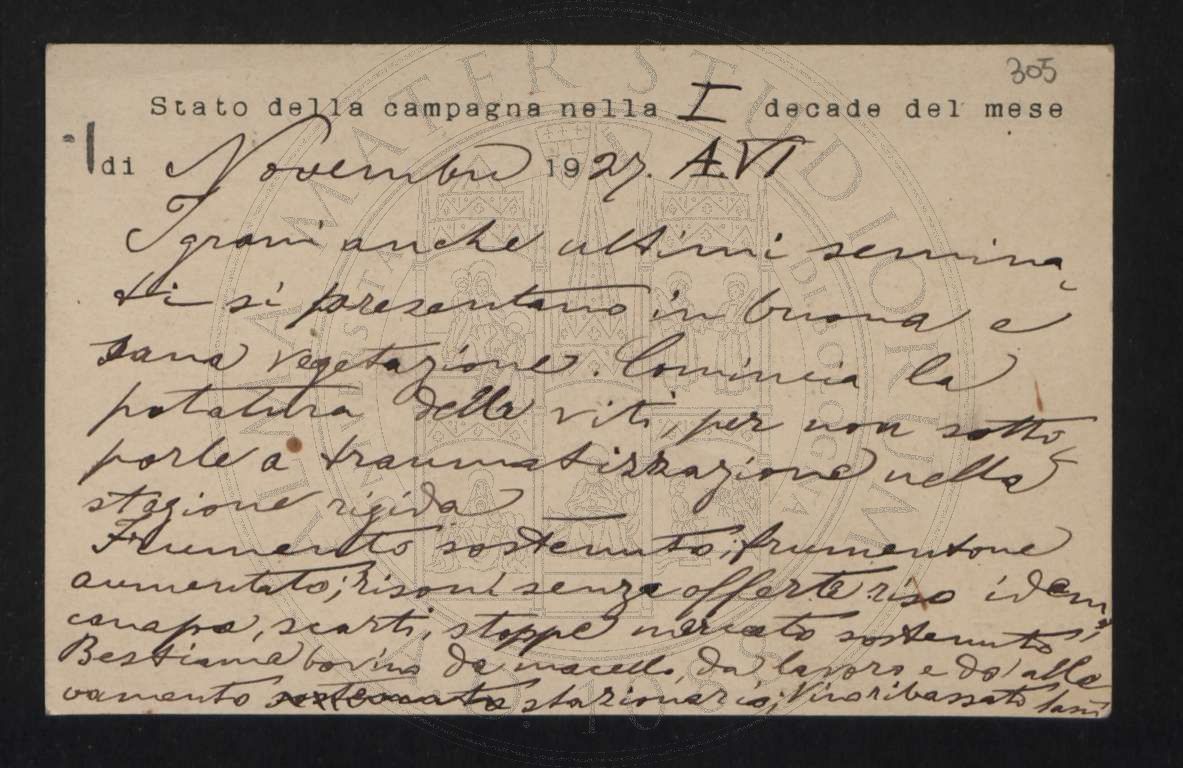 305
Stato della campagna nella I decade del mese
di Novembre 1927. A.VI
I grani anche ultimi semina
ti si presentano in buona e
sana vegetazione. Comincia la
potatura delle viti, per non sotto
porle a traumatizzazione nella
stagione rigida
Frumento sostenuto; frumentone
aumentato; risoni senza offerte riso idem;
canapa, scarti, stoppe mercato sostenuto;
Bestiame bovino da macello, da lavoro e da alle
vamento sostenuto stazionario; Vino ribassato
ALMA MATER STUDIORUM
A.D. 1088